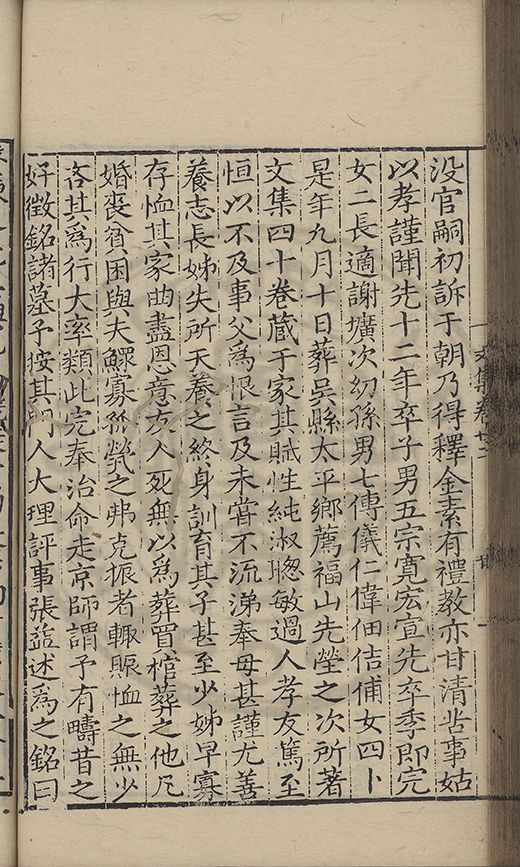 没官嗣初訴于朝乃得釋金素有禮教亦甘清苦事姑
以孝謹聞先十二年卒子男五宗寬宏宣先卒季即完
女二長適謝壙次幼孫男七傳儀仁偉佃佶俌女四卜
是年九月十日葬吳縣太平鄉薦福山先塋之次所著
文集四十卷蔵于家其賦性純淑聰敏過人孝友篤至
恒以不及事父為恨言及未嘗不流涕奉母甚謹尤善
養志長姊失所天養之終身訓育其子甚至少姊早寡
存恤其家曲盡恩意友人死無以為葬買棺葬之他凡
婚喪貧困與夫鰥寡孤煢之弗克振者輙賑恤之無少
吝其為行大率類此完奉治命走京師謂予有疇昔之
好徵銘諸墓予按其門人大理評事張益述為之銘曰
文集卷廿二